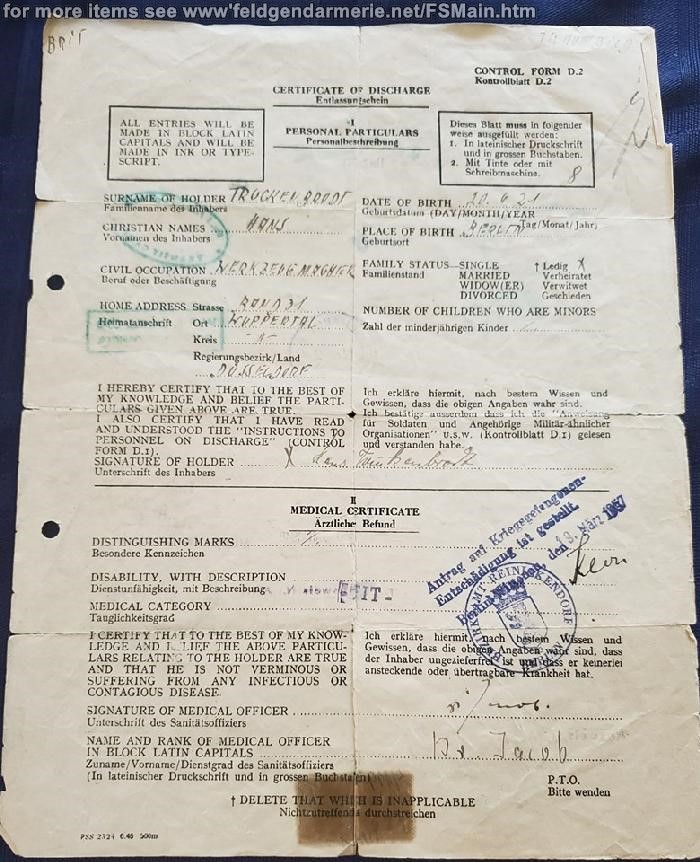 for more items see www.feldgendarmerie.net/FSMain.htm
BRIT
CONTROL FORM D.2
Kontrollblatt D.2
CERTIFICATE OF DISCHARGE
Entlassungschein
ALL ENTRIES WILL BE
MADE IN BLOCK LATIN
CAPITALS AND WILL BE
MADE IN INK OR TYPE-
SCRIPT.
I
PERSONAL PARTICULARS
Personalbeschreibung
Dieses Blatt muss in folgender
weise ausgefüllt werden:
1. In lateinischer Druckschrift
und in grossen Buchstaben.
2. Mit Tinte oder mit
Schreibmaschine.
8
SURNAME OF HOLDER TRUCKENBRODT
Familienname des Inhabers
CHRISTIAN NAMES HANS
Vornamen des Inhabers
CIVIL OCCUPATION WERKZEUGMACHER
Beruf oder Beschäftigung
HOME ADDRESS Strasse
Heimatanschrift Ort WUPPERTAL
Kreis
Regierungsbezirk/Land
DÜSSELDORF
DATE OF BIRTH 20.6.21
Geburtsdatum (DAY/MONTH/YEAR
Tag/Monat/Jahr)
PLACE OF BIRTH BERLIN
Geburtsort
FAMILY STATUS—SINGLE † Ledig X
Familienstand MARRIED Verheiratet
WIDOW(ER) Verwitwet
DIVORCED Geschieden
NUMBER OF CHILDREN WHO ARE MINORS
Zahl der minderjährigen Kinder
I HEREBY CERTIFY THAT TO THE BEST OF
MY KNOWLEDGE AND BELIEF THE PARTI-
CULARS GIVEN ABOVE ARE TRUE.
I ALSO CERTIFY THAT I HAVE READ
AND UNDERSTOOD THE "INSTRUCTIONS TO
PERSONNEL ON DISCHARGE" (CONTROL
FORM D.1).
Ich erkläre hiermit, nach bestem Wissen und
Gewissen, dass die obigen Angaben wahr sind.
Ich bestätige ausserdem dass ich die "Anweisung
für Soldaten und Angehörige Militär-ähnlicher
Organisationen" u.s.w. (Kontrollblatt D.1) gelesen
und verstanden habe.
SIGNATURE OF HOLDER X Hans Truckenbrodt
Unterschrift des Inhabers
II
MEDICAL CERTIFICATE
Ärztliche Befund
DISTINGUISHING MARKS
Besondere Kennzeichen
DISABILITY, WITH DESCRIPTION
Dienstunfähigkeit, mit Beschreibung
MEDICAL CATEGORY
Tauglichkeitsgrad
Antrag auf Kriegsgefangenen-
Entschädigung ist gestellt
Berlin den 1957
BEZIRKSAMT REINICKENDORF
I CERTIFY THAT TO THE BEST OF MY KNOW-
LEDGE AND BELIEF THE ABOVE PARTICU-
LARS RELATING TO THE HOLDER ARE TRUE
AND THAT HE IS NOT VERMINOUS OR
SUFFERING FROM ANY INFECTIOUS OR
CONTAGIOUS DISEASE.
Ich erkläre hiermit, nach bestem Wissen und
Gewissen, dass die obigen Angaben wahr sind, dass
der Inhaber ungezieferfrei ist und dass er keinerlei
ansteckende oder übertragbare Krankheit hat.
SIGNATURE OF MEDICAL OFFICER
Unterschrift des Sanitätsoffiziers
NAME AND RANK OF MEDICAL OFFICER
IN BLOCK LATIN CAPITALS Dr. Jacob
Zuname/Vorname/Dienstgrad des Sanitätsoffiziers
(In lateinischer Druckschrift und in grossen Buchstaben)
P.T.O.
Bitte wenden
† DELETE THAT WHICH IS INAPPLICABLE
Nichtzutreffendes durchstreichen
PSS 2324 6.46 500m